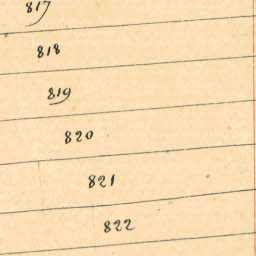 817
818
819
820
821
822